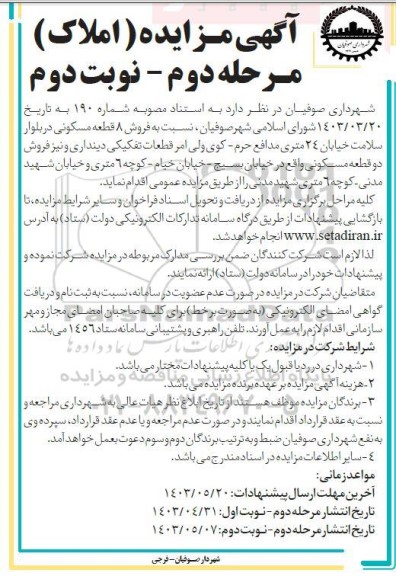 آگهی مـزایده (املاک)
مـرحله دوم - نوبت دوم
شهرداری صوفیان
شهرداری صوفیان در نظر دارد به استناد مصوبه شماره ۱۹۰ به تاریخ
۱۴۰۳/۰۳/۲۰ شورای اسلامی شهر صوفیان ، نسبت به فروش ۸ قطعه مسکونی در بلوار
سلامت خیابان ۲۴ متری مدافع حرم - کوی ولی امر قطعات تفکیکی دینداری و نیز فروش
دو قطعه مسکونی واقع در خیابان بسیج - خیابان خیام - کوچه ۶ متری و خیابان شهید
مدنی-کوچه ۶ متری شهید مدنی را از طریق مزایده عمومی اقدام نماید.
کلیه مراحل برگزاری مزایده از دریافت و تحویل اسناد فراخوان و سایر شرایط مزایده، تا
بازگشایی پیشنهادات از طریق درگاه سامانه تدارکات الکترونیکی دولت (ستاد) به آدرس
www.setadiran.ir انجام خواهد شد.
لذا لازم است شرکت کنندگان ضمن بررسی مدارک مربوطه در مزایده شرکت نموده و
پیشنهادات خود را در سامانه دولت (ستاد) ارائه نمایند.
متقاضیان شرکت در مزایده در صورت عدم عضویت در سامانه، نسبت به ثبت نام و دریافت
گواهی امضای الکترونیکی (به صورت برخط) برای کلیه صاحبان امضای مجاز و مهر
سازمانی اقدام لازم را به عمل آورند. تلفن راهبری و پشتیبانی سامانه ستاد ۱۴۵۶ می باشد.
شرایط شرکت در مزایده:
۱-شهرداری در رد یا قبول یک یا کلیه پیشنهادات مختار می باشد.
۲-هزینه آگهی مزایده بر عهده برنده مزایده می باشد.
۳-برندگان مزایده موظف هستند از تاریخ ابلاغ نظر هیات عالی به شهرداری مراجعه و
نسبت به عقد قرارداد اقدام نمایند و در صورت عدم مراجعه و یا عدم عقد قرارداد، سپرده وی
به نفع شهرداری صوفیان ضبط و به ترتیب برندگان دوم و سوم دعوت بعمل خواهد آمد.
۴-سایر اطلاعات مزایده در اسناد مندرج می باشد.
مواعد زمانی:
آخرین مهلت ارسال پیشنهادات: ۱۴۰۳/۰۵/۲۰
تاریخ انتشار مرحله دوم -نوبت اول: ۱۴۰۳/۰۴/۳۱
تاریخ انتشار مرحله دوم -نوبت دوم: ۱۴۰۳/۰۵/۰۷
شهردار صوفیان- فرجی